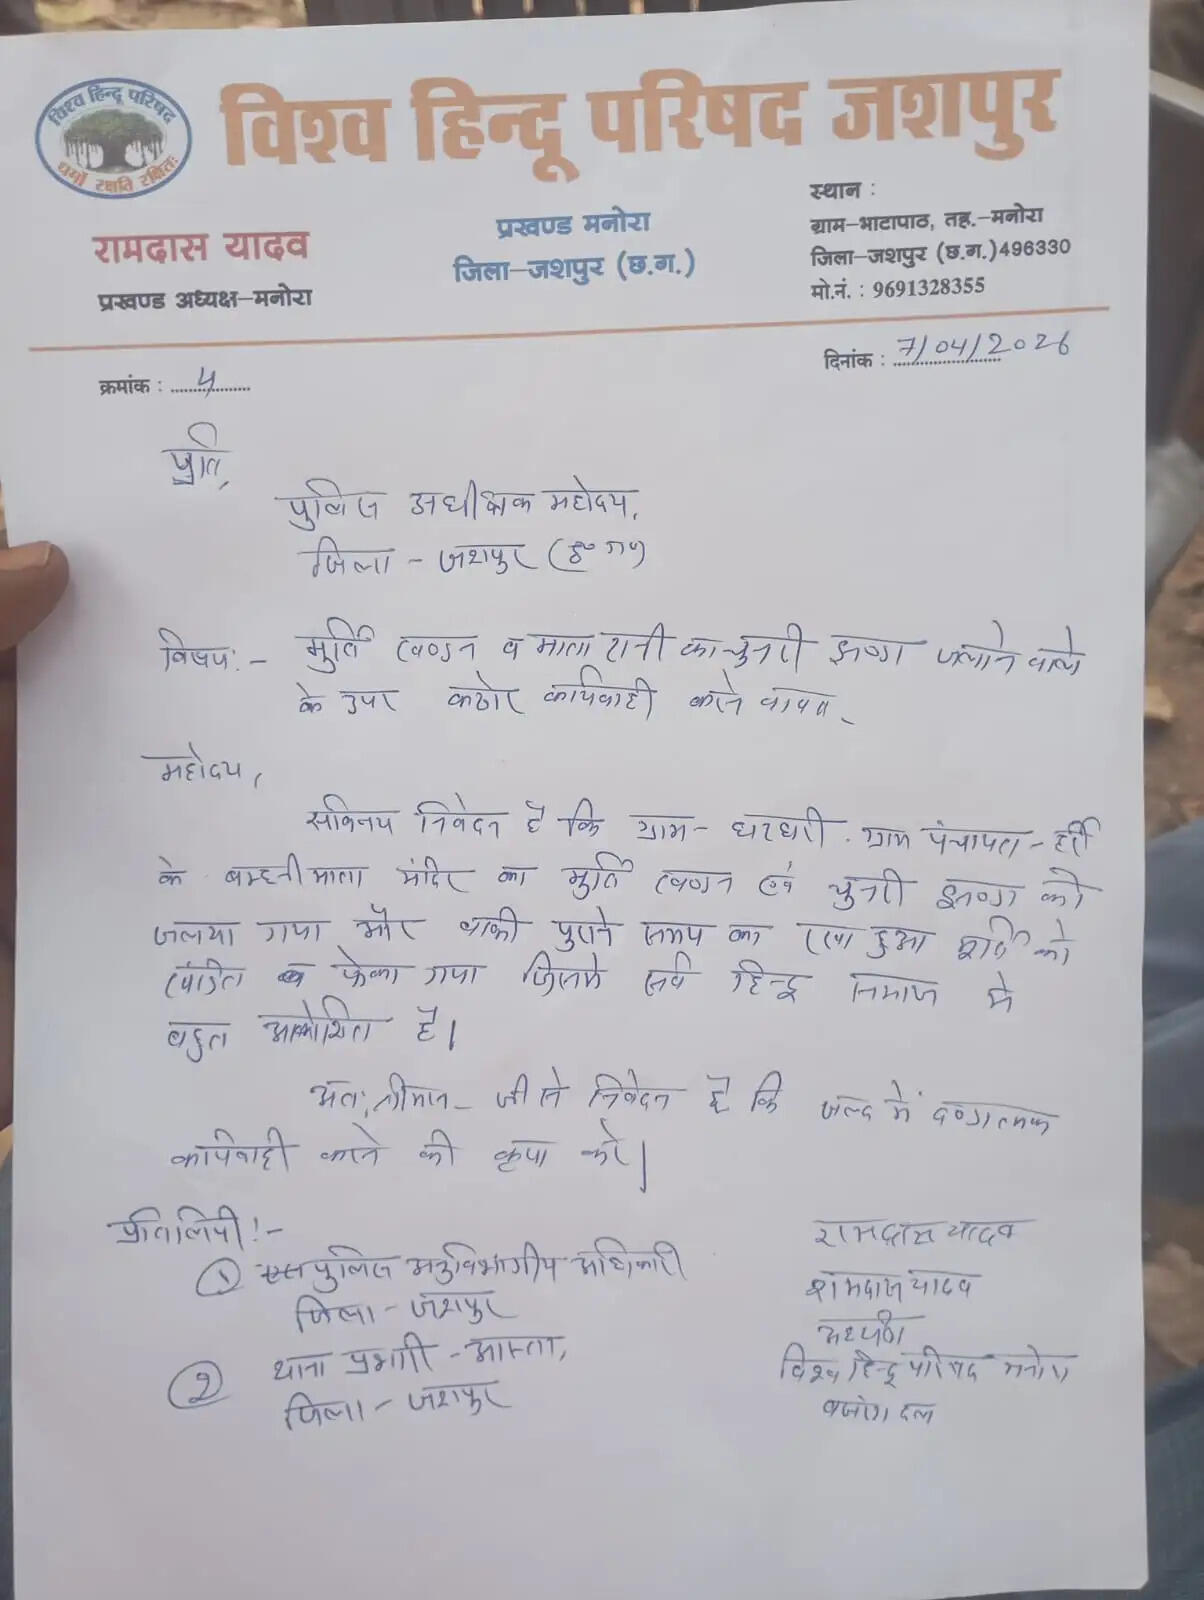 विश्व हिन्दू परिषद
धर्मो रक्षति रक्षितः
विश्व हिन्दू परिषद जशपुर
रामदास यादव
प्रखण्ड अध्यक्ष–मनोरा
प्रखण्ड मनोरा
जिला–जशपुर (छ.ग.)
स्थान :
ग्राम–भाटापाठ, तह.–मनोरा
जिला–जशपुर (छ.ग.)496330
मो.नं. : 9691328355
क्रमांक : 4
दिनांक : 7/04/2026
प्रति,
पुलिस अधीक्षक महोदय,
जिला - जशपुर (छ०ग०)
विषय:- मुर्ति खण्डन व माता रानी का चुनरी झण्डा जलाने वाले
के उपर कठोर कार्यवाही करने बाबत -
महोदय,
सविनय निवेदन है कि ग्राम - घरघरी ग्राम पंचायत - हर्री
के बम्हनी माता मंदिर का मुर्ति खण्डन एवं चुनरी झण्डा को
जलया गया और बाकी पुराने समय का रखा हुआ मुर्ति को
खंडित व फेका गया जिससे सर्व हिन्दू समाज मे
बहुत आक्रोशित है।
अतः श्रीमान - जी से निवेदन है कि जल्द में दण्डात्मक
कार्यवाही करने की कृपा करे।
प्रतिलिपी :-
① पुलिस अनुविभागीय अधिकारी
जिला - जशपुर
② थाना प्रभारी - आस्ता,
जिला - जशपुर
रामदास यादव
रामदास यादव
अध्यक्ष
विश्व हिन्दू परिषद मनोरा
बजरंग दल